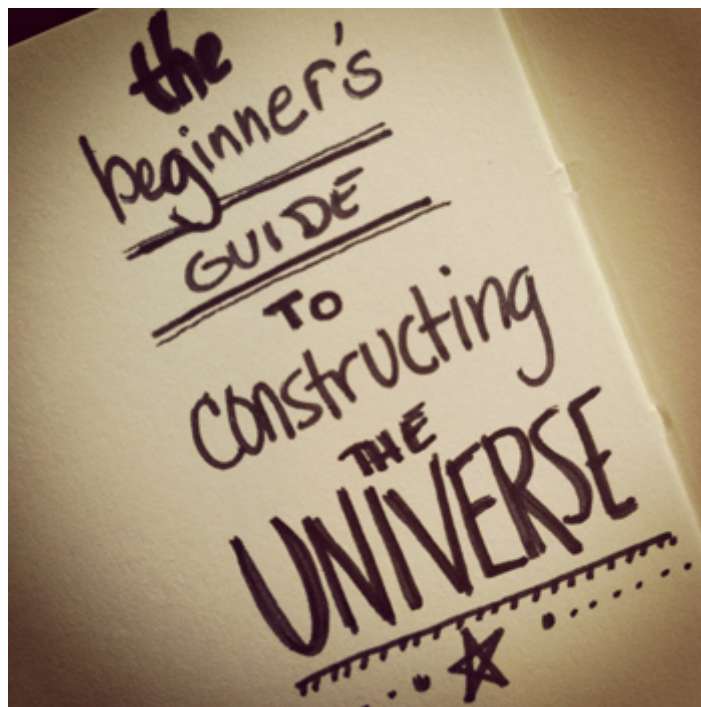 the
beginner's
GUIDE
TO
constructing
THE
UNIVERSE